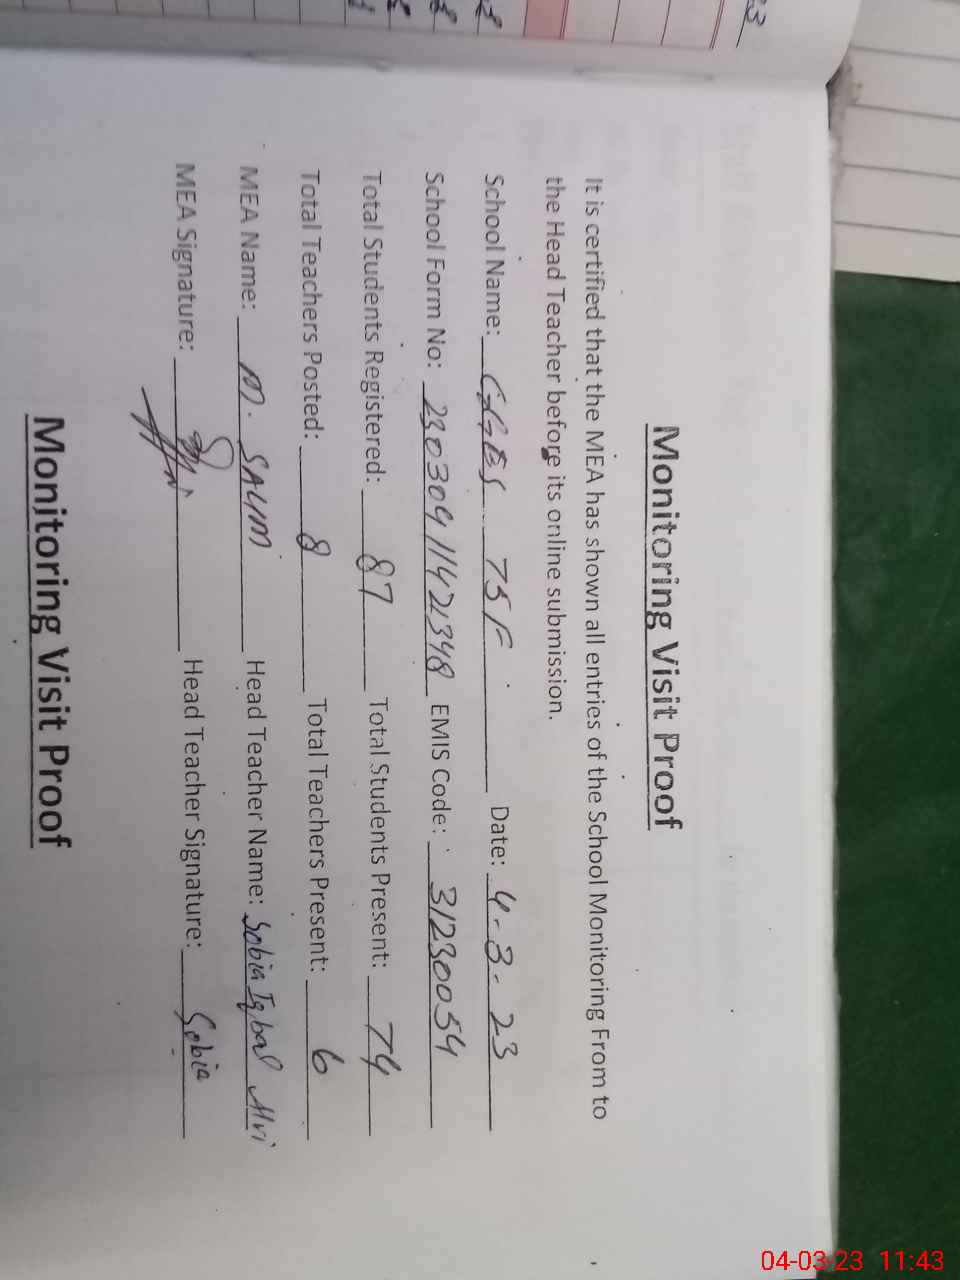 Monitoring Visit Proof
It is certified that the MEA has shown all entries of the School Monitoring From to
the Head Teacher before its online submission.
School Name: GGES 75F Date: 4-3-23
School Form No: 23030411421348 EMIS Code: 31230054
Total Students Registered: 87 Total Students Present: 74
Total Teachers Posted: 8 Total Teachers Present: 6
MEA Name: M. SALIM Head Teacher Name: Sobia Iqbal Alvi
MEA Signature: Head Teacher Signature: Sobia
Monitoring Visit Proof
04-03-23 11:43